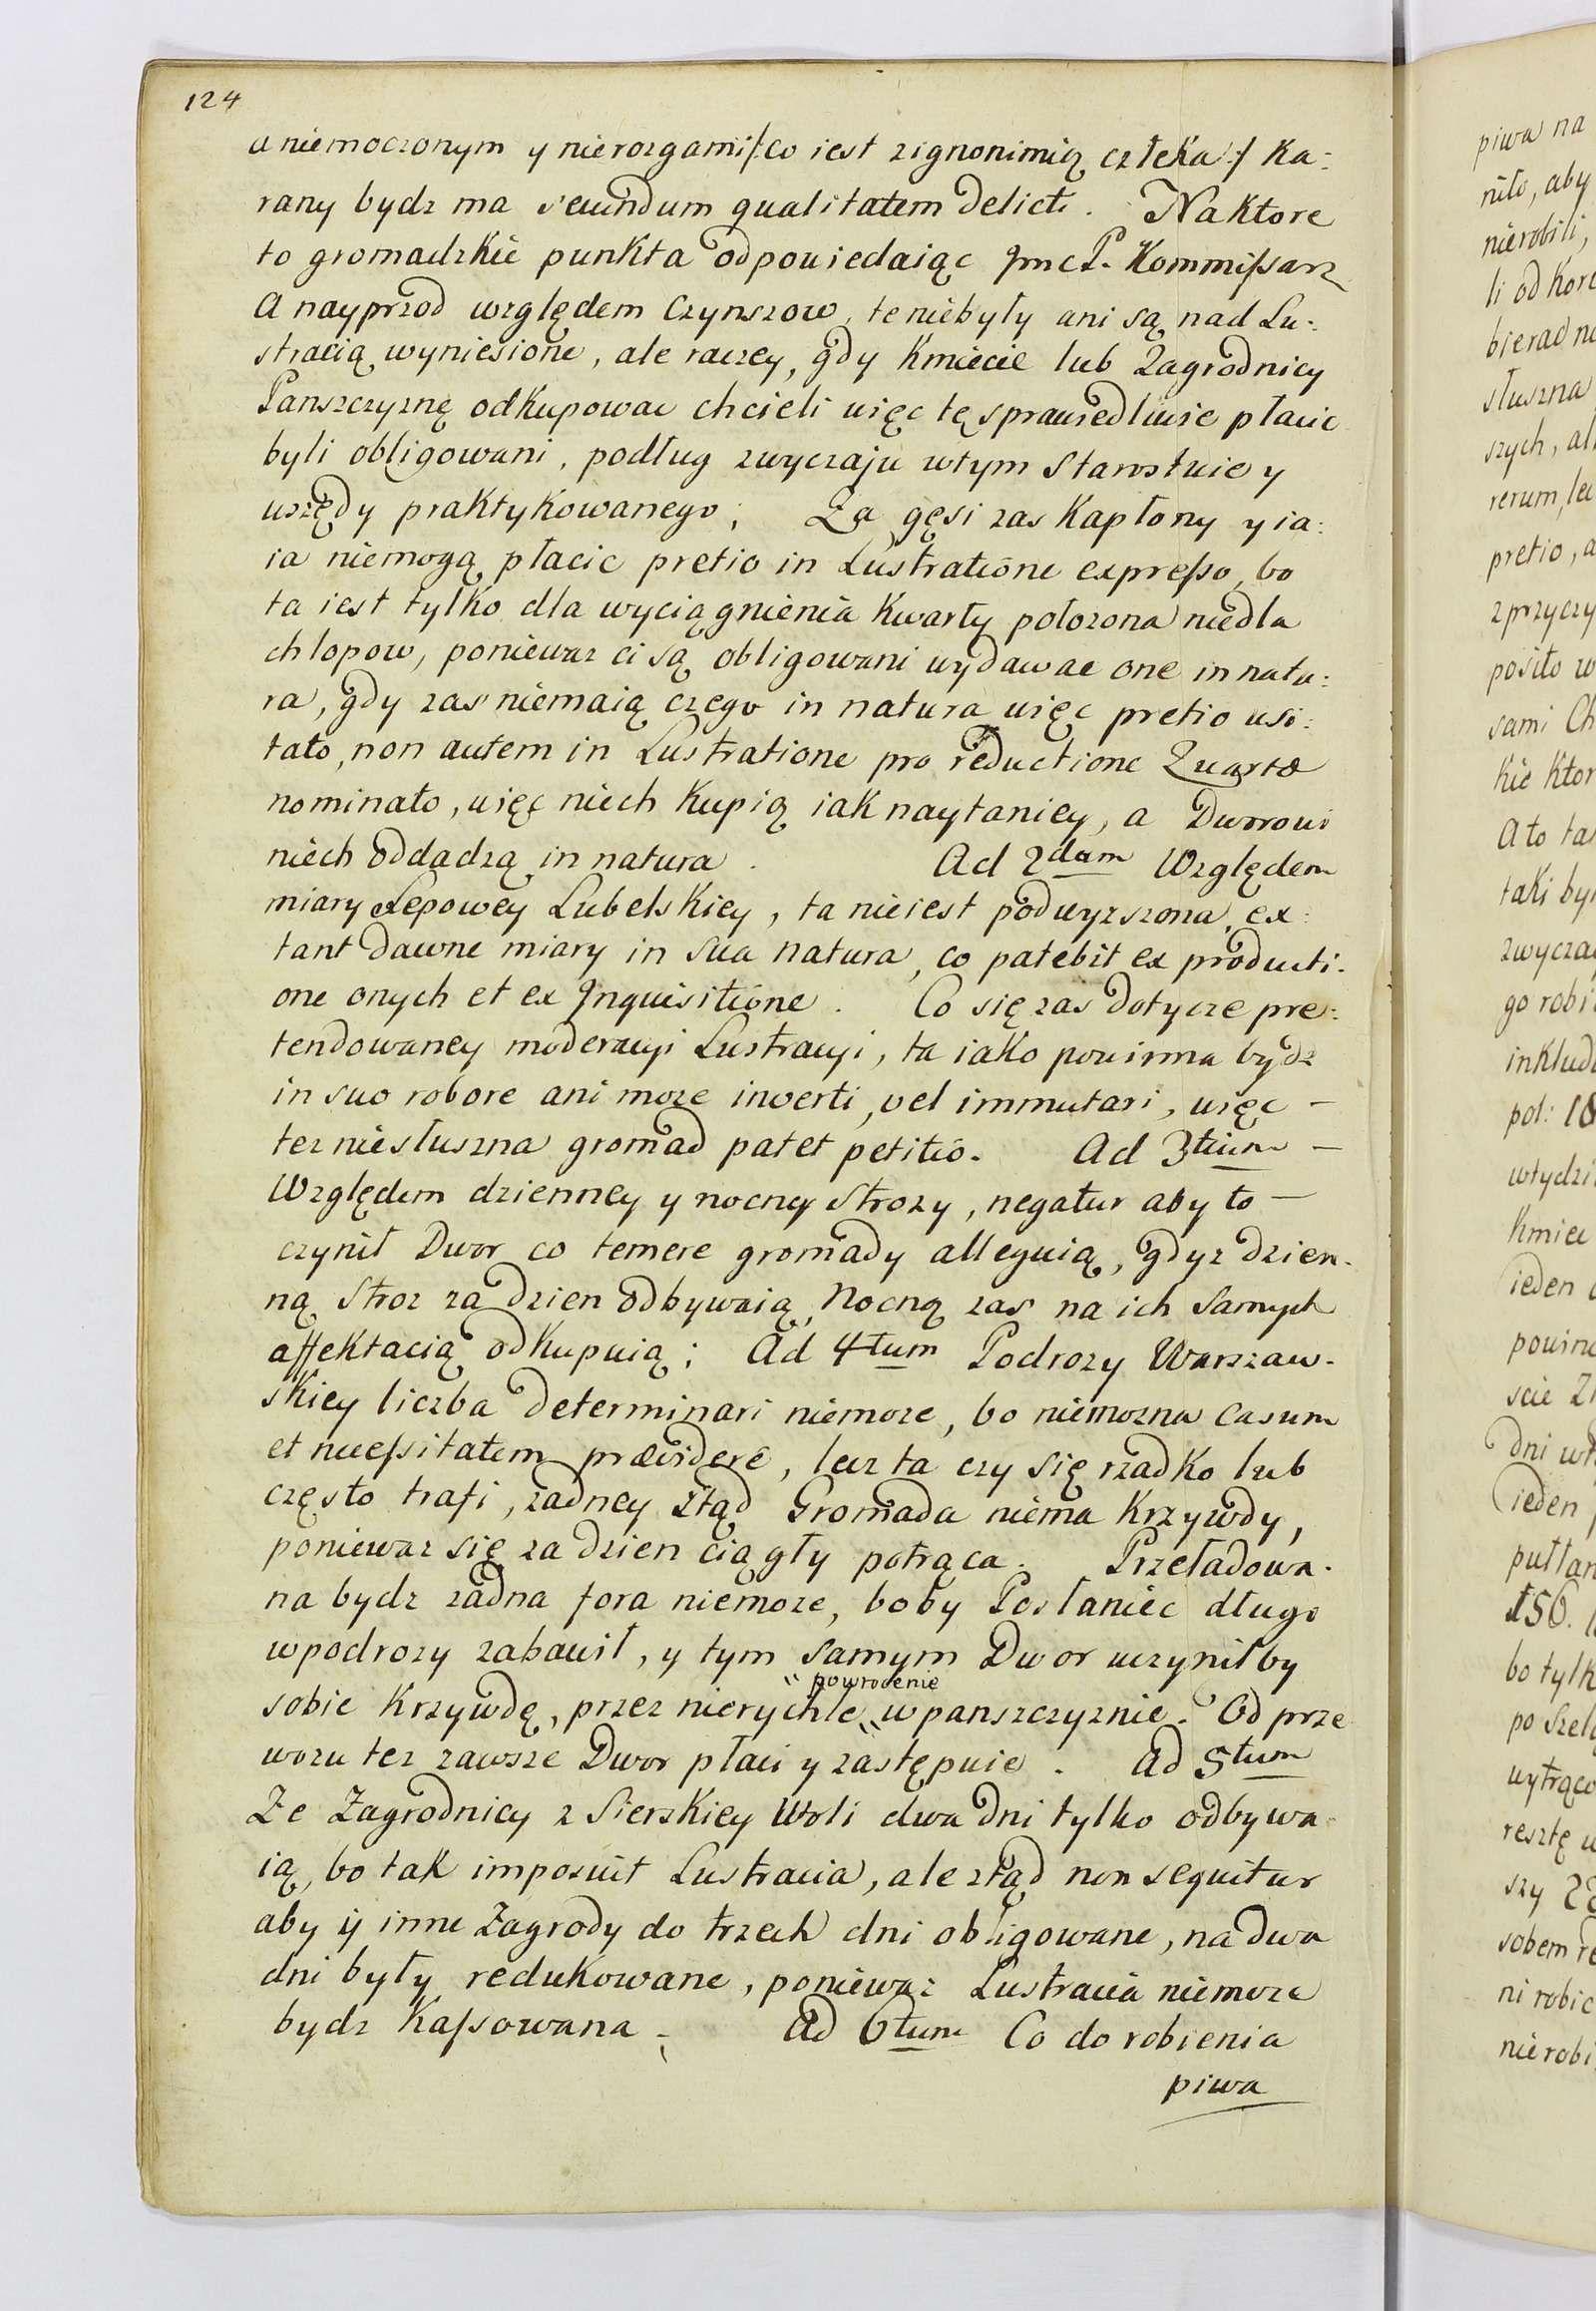 124
a niemoczonym y nierozgami /: co iest zignonimią człeka :/ Ka:
rany bydz ma secundum qualitatem delicti. Naktore
to gromadzkie punkta odpowiedaiąc Jmc P. Kommissarz
A nayprzod względem Czynszow, te niebyły ani są nad Lu:
stracią wyniesione, ale raczey, gdy Kmiecie lub Zagrodnicy
Panszczyznę odkupowac chcieli więc tę sprawiedliwie płacic
byli obligowani, podług zwyczaju wtym Starostwie y
wszędy praktykowanego; Za gęsi zas Kapłony y ia:
ia niemogą płacic pretio in Lustratione expresso, bo
ta iest tylko dla wyciągnienia Kwarty położona niedla
chlopow, poniewaz ci są obligowani wydawac one in natu:
ra, gdy zas niemaią czego in natura więc pretio usi:
tato, non autem in Lustratione pro reductione Quartæ
nominato, więc niech Kupią iak naytaniey, a Dworowi
niech oddadzą in natura. Ad 2dam Względem
miary Lepowey Lubelskiey, ta nieiest podwyzszona, ex:
tant dawne miary in sua natura, co patebit ex producti:
one onych et ex Inquisitione. Co się zas dotycze pre:
tendowaney moderacyi Lustracyi, ta iako powinna bydz
in suo robore ani moze inverti, vel immutari, więc –
tez niesłuszna gromad patet petitio. Ad 3tium –
Względem dzienney y nocney Strozy, negatur aby to –
czynił Dwor co temere gromady alleguią, gdyz dzien.
ną stroz za dzien odbywaią, Nocną zas na ich samych
affektacią odkupuią; Ad 4tum Podrozy Warszaw.
skiey liczba determinari niemoze, bo niemozna casum
et necessitatem prævidere, lecz ta czy się rzadko lub
często trafi, zadney ztąd Gromada niema Krzywdy,
poniewaz się za dzien ciągły potrąca. Przeładowa.
na bydz zadna fora niemoze, boby Posłaniec długo
wpodrozy zabawił, y tym samym Dwor uczyniłby
powrocenie
sobie Krzywdę, przez nierychłe wpanszczyznie. Od prze
wozu tez zawsze Dwor płaci y zastępuie. Ad 5tum
Ze Zagrodnicy z Sierskiey Woli dwa dni tylko odbywa
ią, bo tak imposuit Lustracia, ale ztąd non sequitur
aby ij inne Zagrody do trzech dni obligowane, na dwa
dni były redukowane, poniewaz Lustracia niemoze
bydz Kassowana; Ad 6tum Co do robienia
piwa
piwa na
niło, aby
nierobili,
li od Kor
słuszna
szych,
rerum,
pretio, a
z przyczy
posito w
sami Ch
kie Ktor
A to ta
taki by
go robi
pol: 18
wtydzi
Kmiec
ieden
dni
ieden
156.
bo tylk
resztę
sobem
ni robic
nie robi